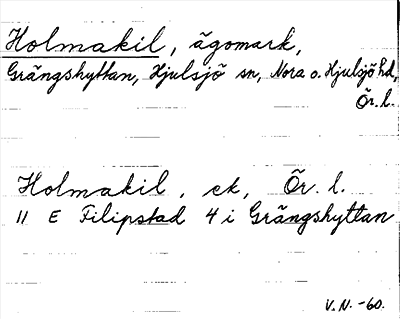 Holmakil, ägomark,
Grängshyttan, Hjulsjö sn, Nora o. Hjulsjö hd,
Ör. l.
Holmakil, ek, Ör. l.
11 E Filipstad 4 i Grängshyttan
V.N. -60.